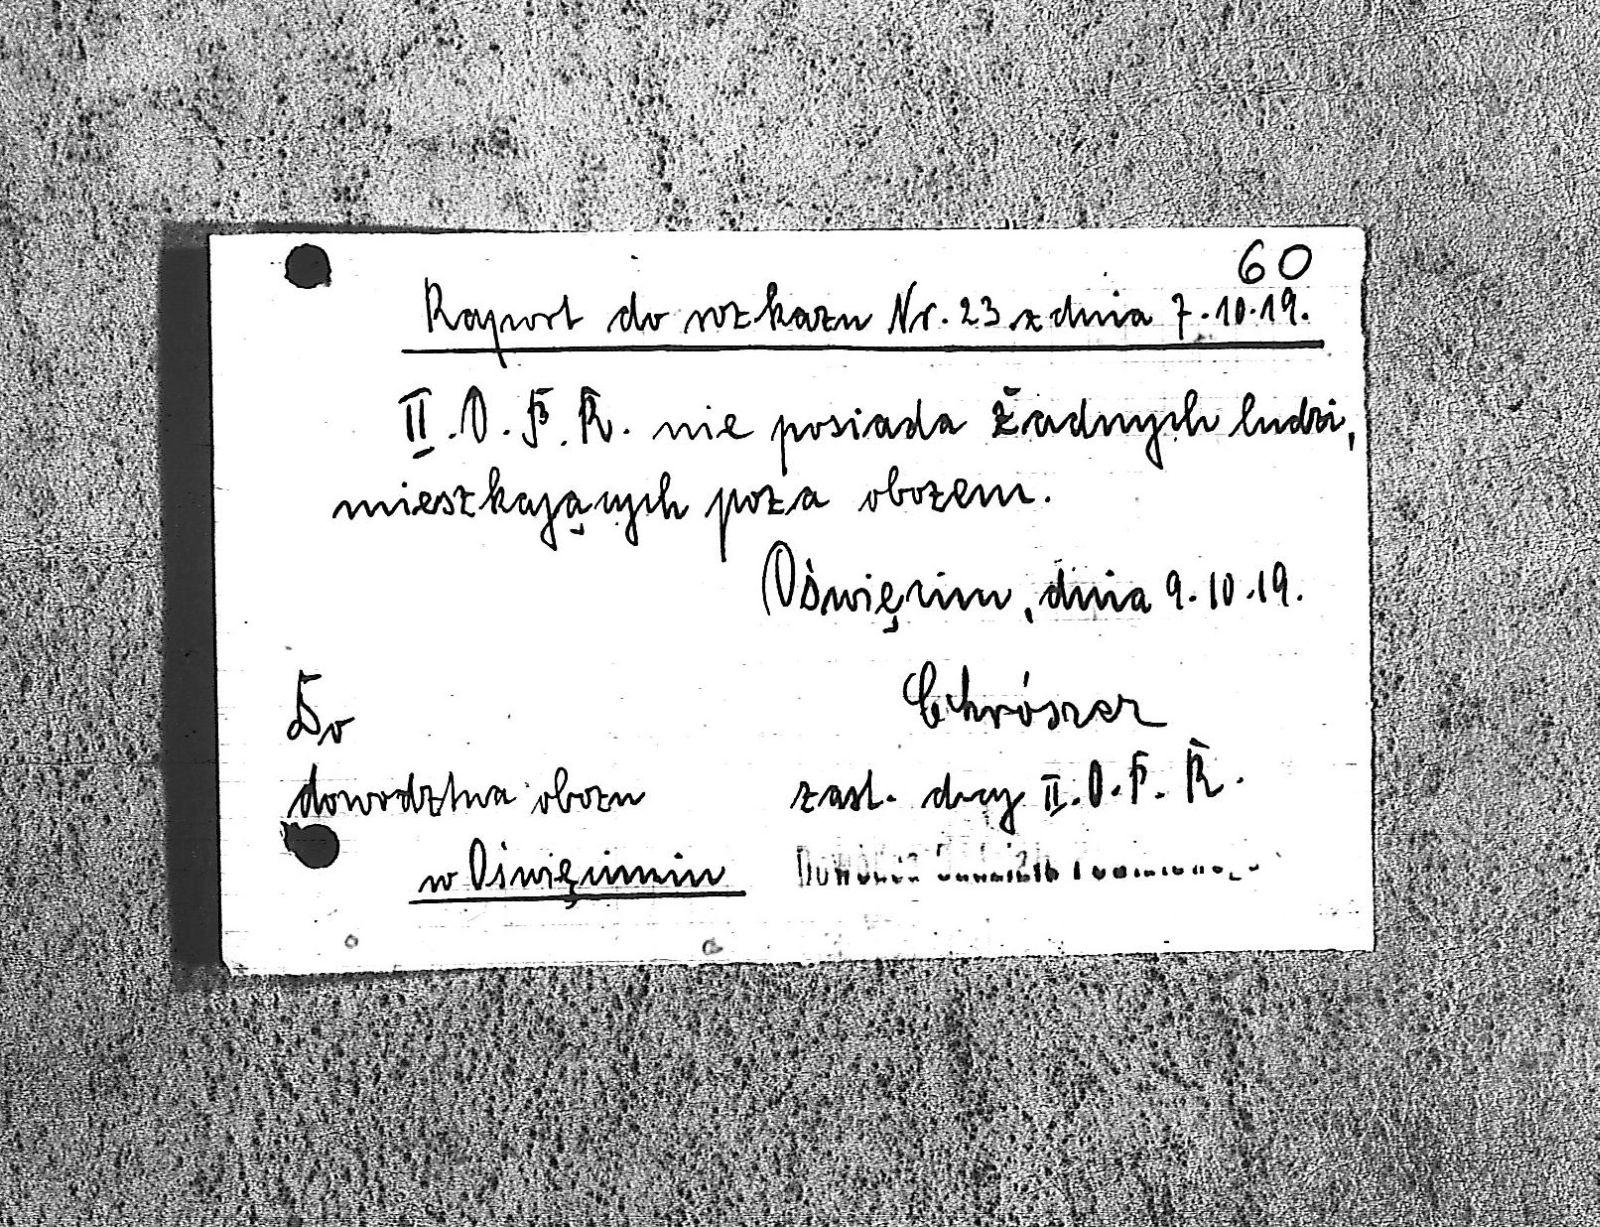 60
Raport do rozkazu Nr. 23 z dnia 7.10.19.
II. O. F. R. nie posiada żadnych ludzi,
mieszkających poza obozem.
Oświęcim, dnia 9.10.19.
Chrószcz
Do
dowodztwa obozu
zast. dcy II. O. F. R.
w Oświęcimiu